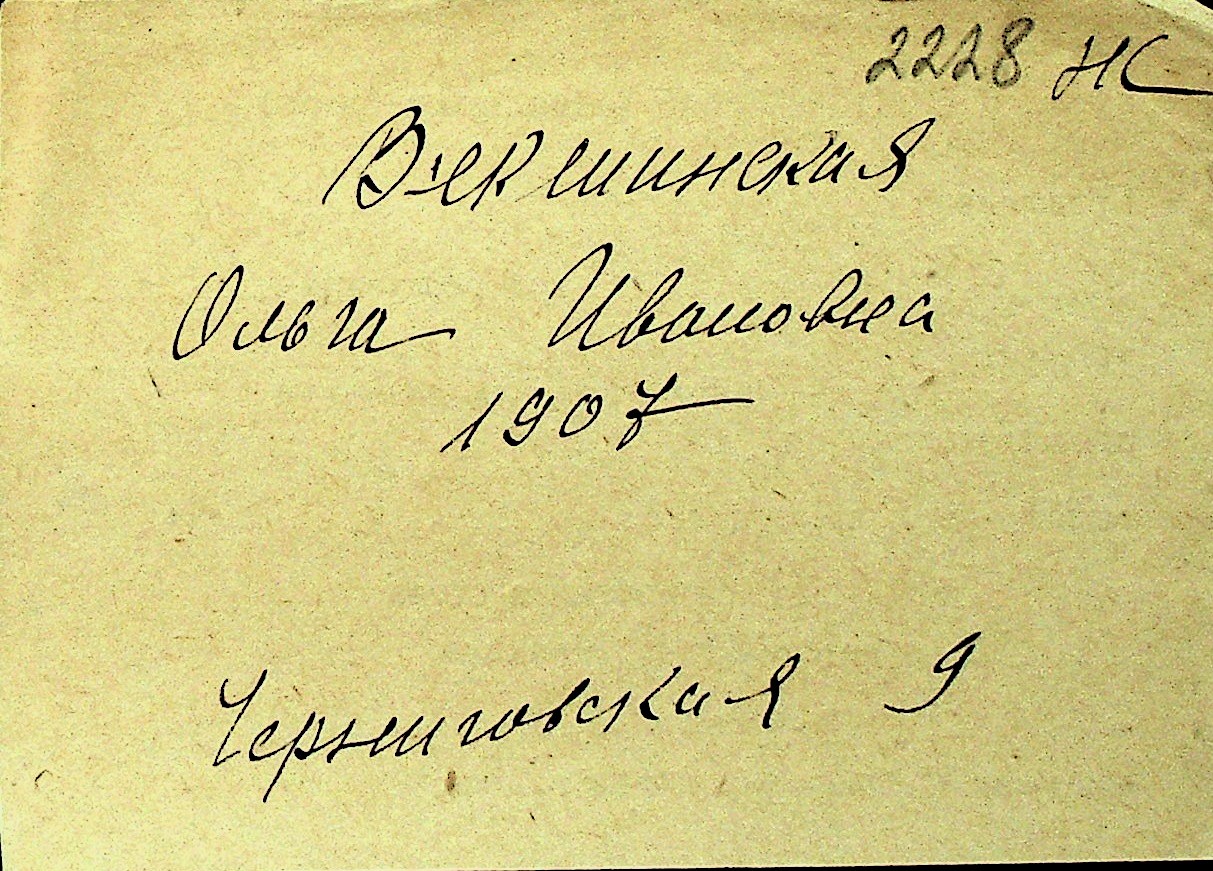 2228 НС
Векшинская
Ольга Ивановна
1907
Черниговская 9